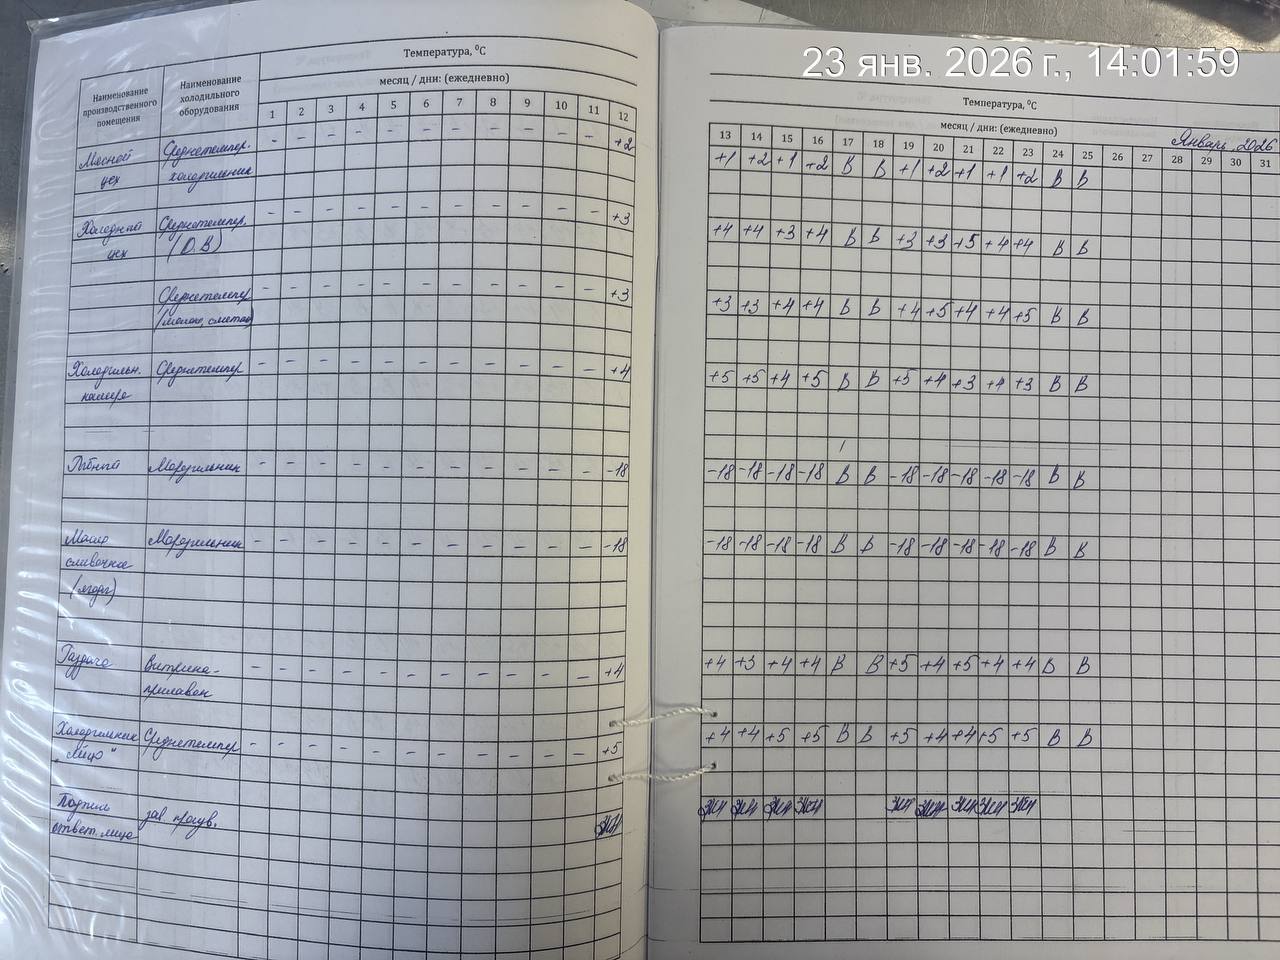 23 янв. 2026 г., 14:01:59
Температура, ⁰С
месяц / дни: (ежедневно)
Наименование производственного помещения
Наименование холодильного оборудования
1 2 3 4 5 6 7 8 9 10 11 12
Мясной цех Среднетемпер. холодильник - - - - - - - - - - - +2
Холодный цех Среднетемпер. (О.В) - - - - - - - - - - - +3
Среднетемпер (молоко, сметана) - - - - - - - - - - - +3
Холодильн. камера Среднетемпер - - - - - - - - - - - +4
Рыбный Морозильник - - - - - - - - - - - -18
Масло сливочное (ягоды) Морозильник - - - - - - - - - - - -18
Раздача Витрина-прилавок - - - - - - - - - - - +4
Холодильник "Яйцо" Среднетемпер - - - - - - - - - - - +5
Подпись ответ. лица зав произв.
Температура, ⁰С
месяц / дни: (ежедневно)
Январь, 2026
13 14 15 16 17 18 19 20 21 22 23 24 25 26 27 28 29 30 31
+1 +2 +1 +2 В В +1 +2 +1 +1 +2 В В
+4 +4 +3 +4 В В +3 +3 +5 +4 +4 В В
+3 +3 +4 +4 В В +4 +5 +4 +4 +5 В В
+5 +5 +4 +5 В В +5 +4 +3 +4 +3 В В
-18 -18 -18 -18 В В -18 -18 -18 -18 -18 В В
-18 -18 -18 -18 В В -18 -18 -18 -18 -18 В В
+4 +3 +4 +4 В В +5 +4 +5 +4 +4 В В
+4 +4 +5 +5 В В +5 +4 +4 +5 +5 В В